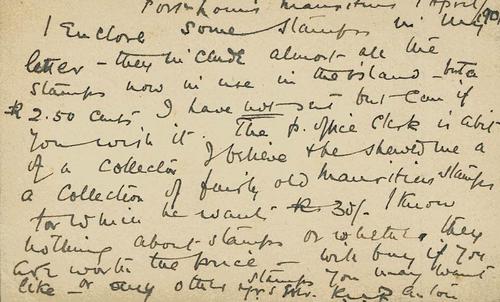 Port Louis Mauritius 1 April/90
I Enclose some stamps in my
letter - they include almost all the
stamps now in use in the island - but a
R 2.50 cents I have not sent but can if
you wish it. The p. office Clerk is a bit
of a collector I believe & he shewed me a
a Collection of fairly old Mauritius stamps
for which he wants R 30/. I know
nothing about stamps or whether they
are worth the price - will buy if you
like - or any other stamps you may want
yrs